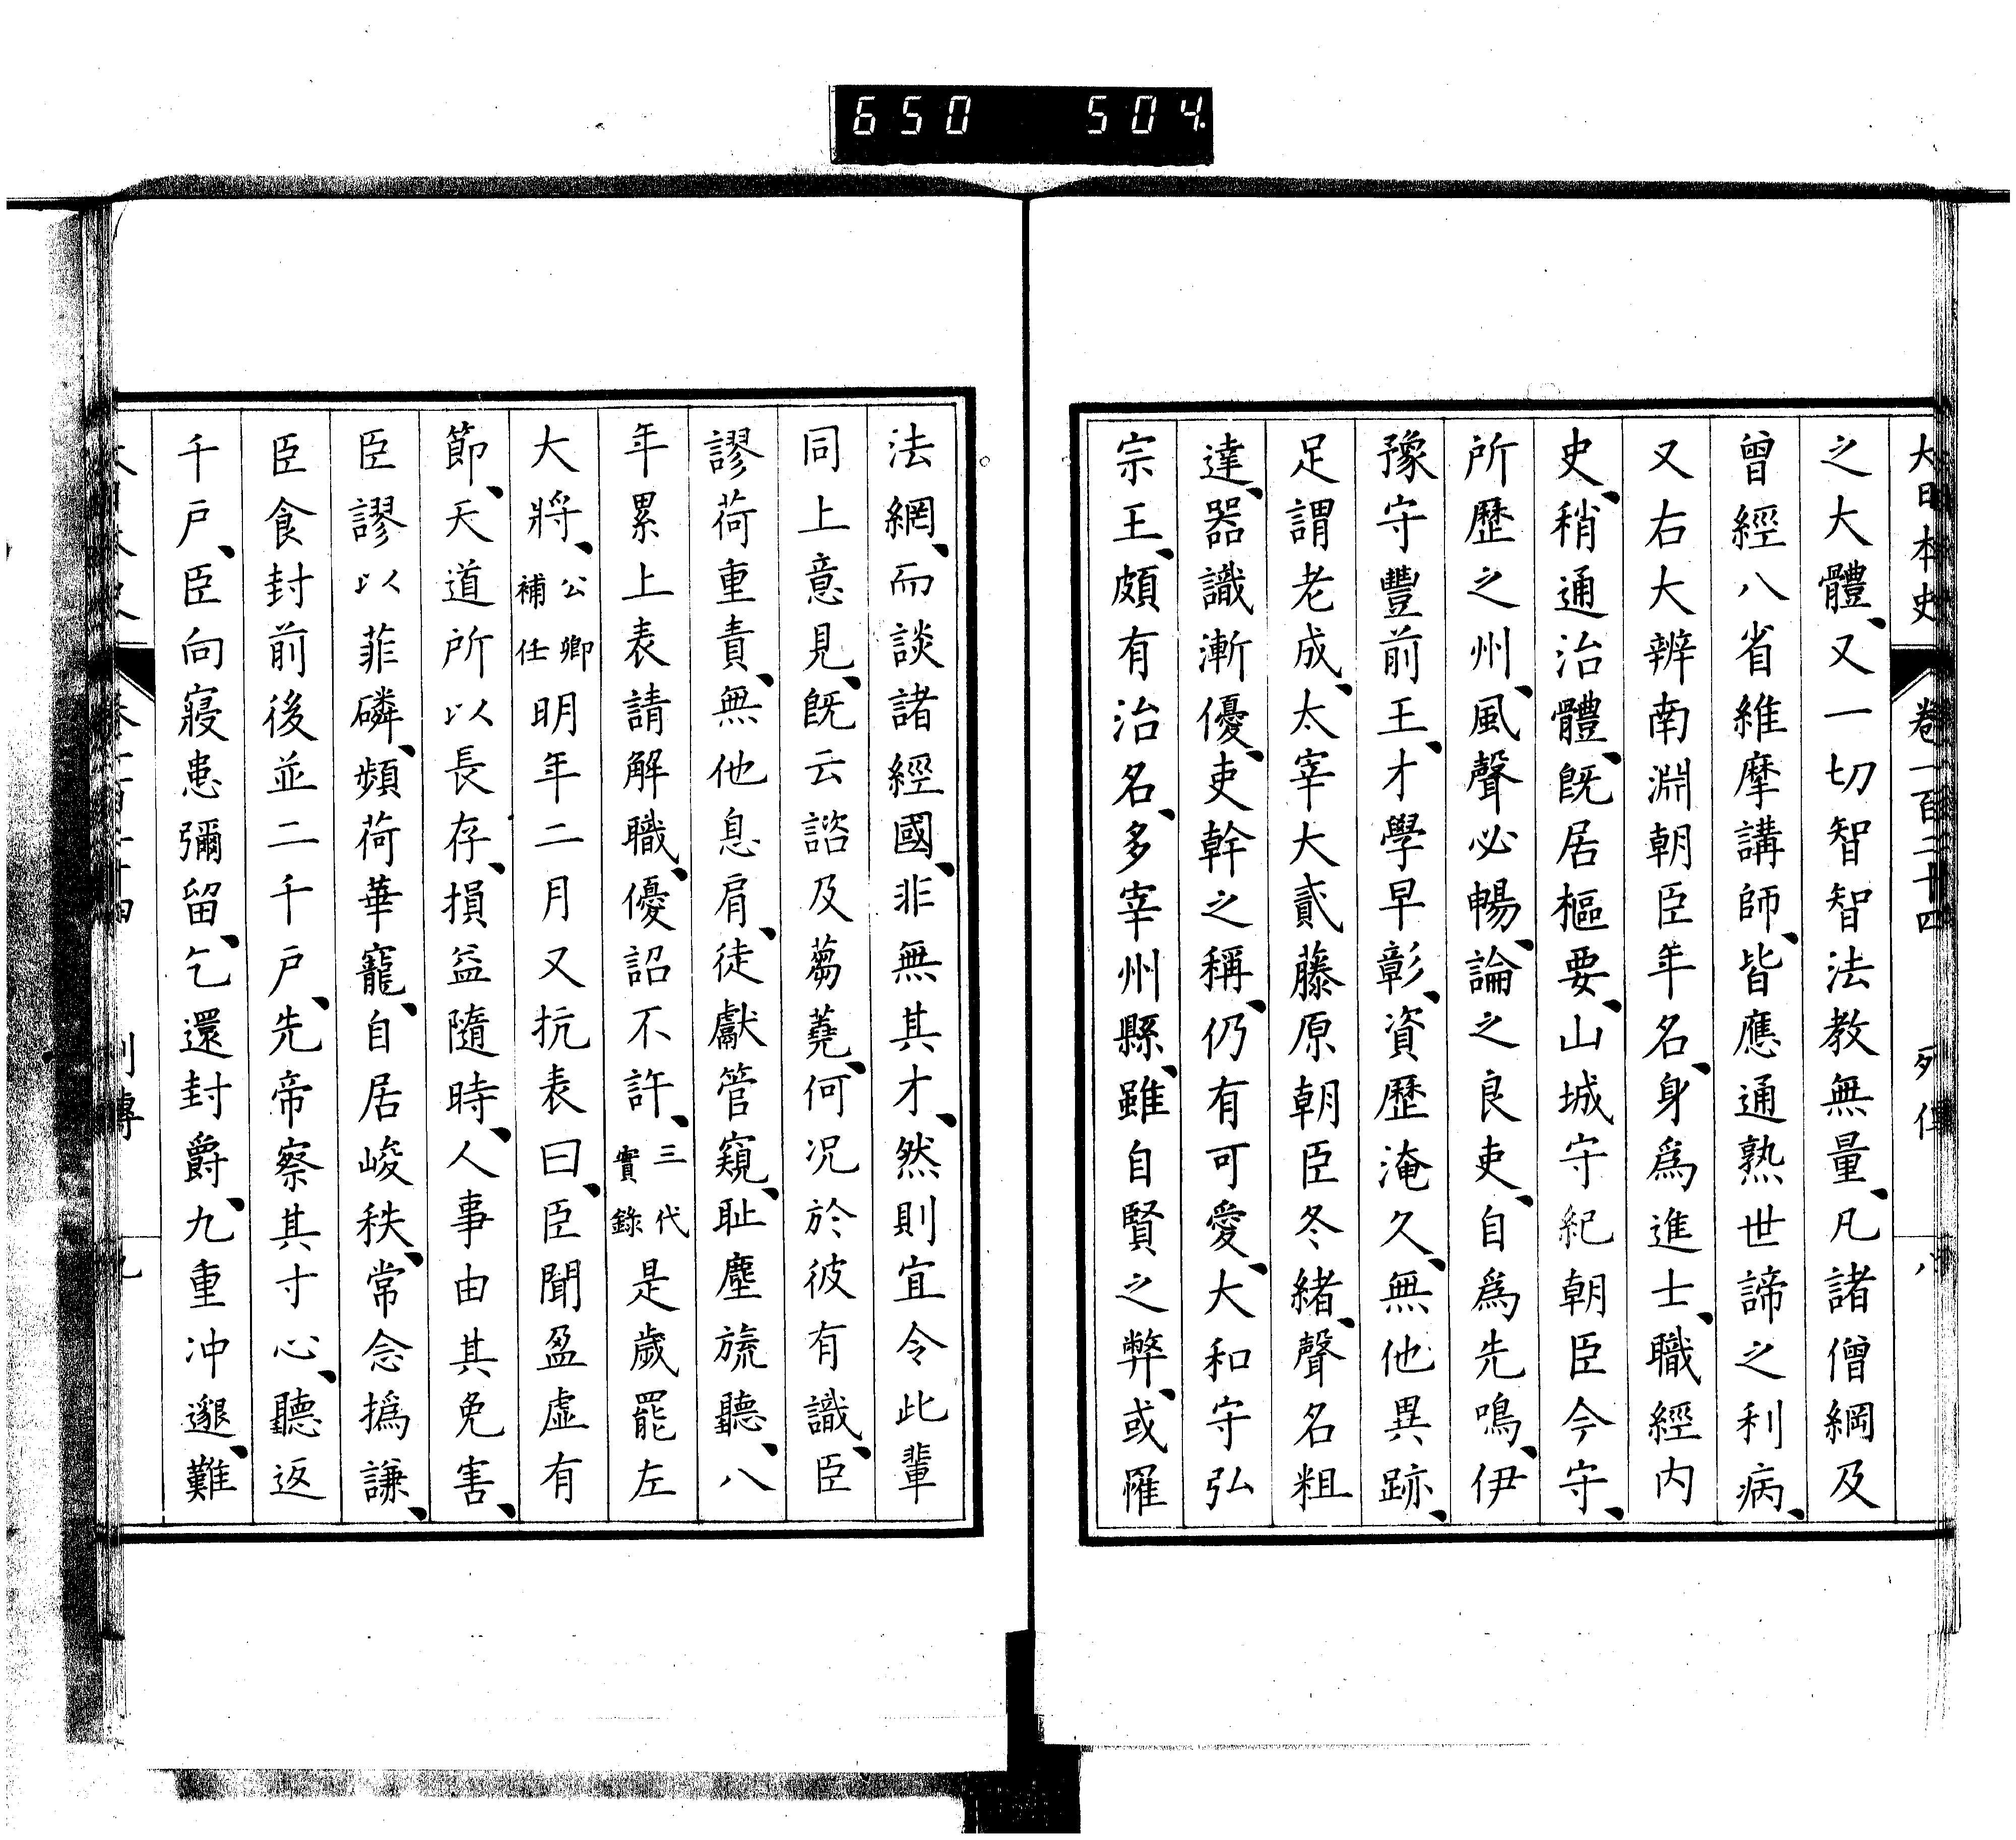 650 504
大日本史 卷一百二十四 列傳 八
之大體、又一切智智法教無量、凡諸僧綱及
曾經八省維摩講師、皆應通熟世諦之利病、
又右大辨南淵朝臣年名、身爲進士、職經内
史、稍通治體、旣居樞要、山城守紀朝臣今守、
所歷之州、風聲必暢、論之良吏、自爲先鳴、伊
豫守豐前王、才學早彰、資歷淹久、無他異跡、
足謂老成、太宰大貳藤原朝臣冬緒、聲名粗
達、器識漸優、吏幹之稱、仍有可愛、大和守弘
宗王、頗有治名、多宰州縣、雖自賢之弊、或罹
法網、而談諸經國、非無其才、然則宜令此輩
同上意見、旣云諮及蒭蕘、何況於彼有識、臣
謬荷重責、無他息肩、徒獻管窺、耻塵旒聽、八
年累上表請解職、優詔不許、三代實錄是歲罷左
大將、公卿補任明年二月又抗表曰、臣聞盈虛有
節、天道所以長存、損益隨時、人事由其免害、
臣謬以菲磷、頻荷華寵、自居峻秩、常念撝謙、
臣食封前後並二千戶、先帝察其寸心、聽返
千戶、臣向寢患彌留、乞還封爵、九重沖邈、難
列傳 九